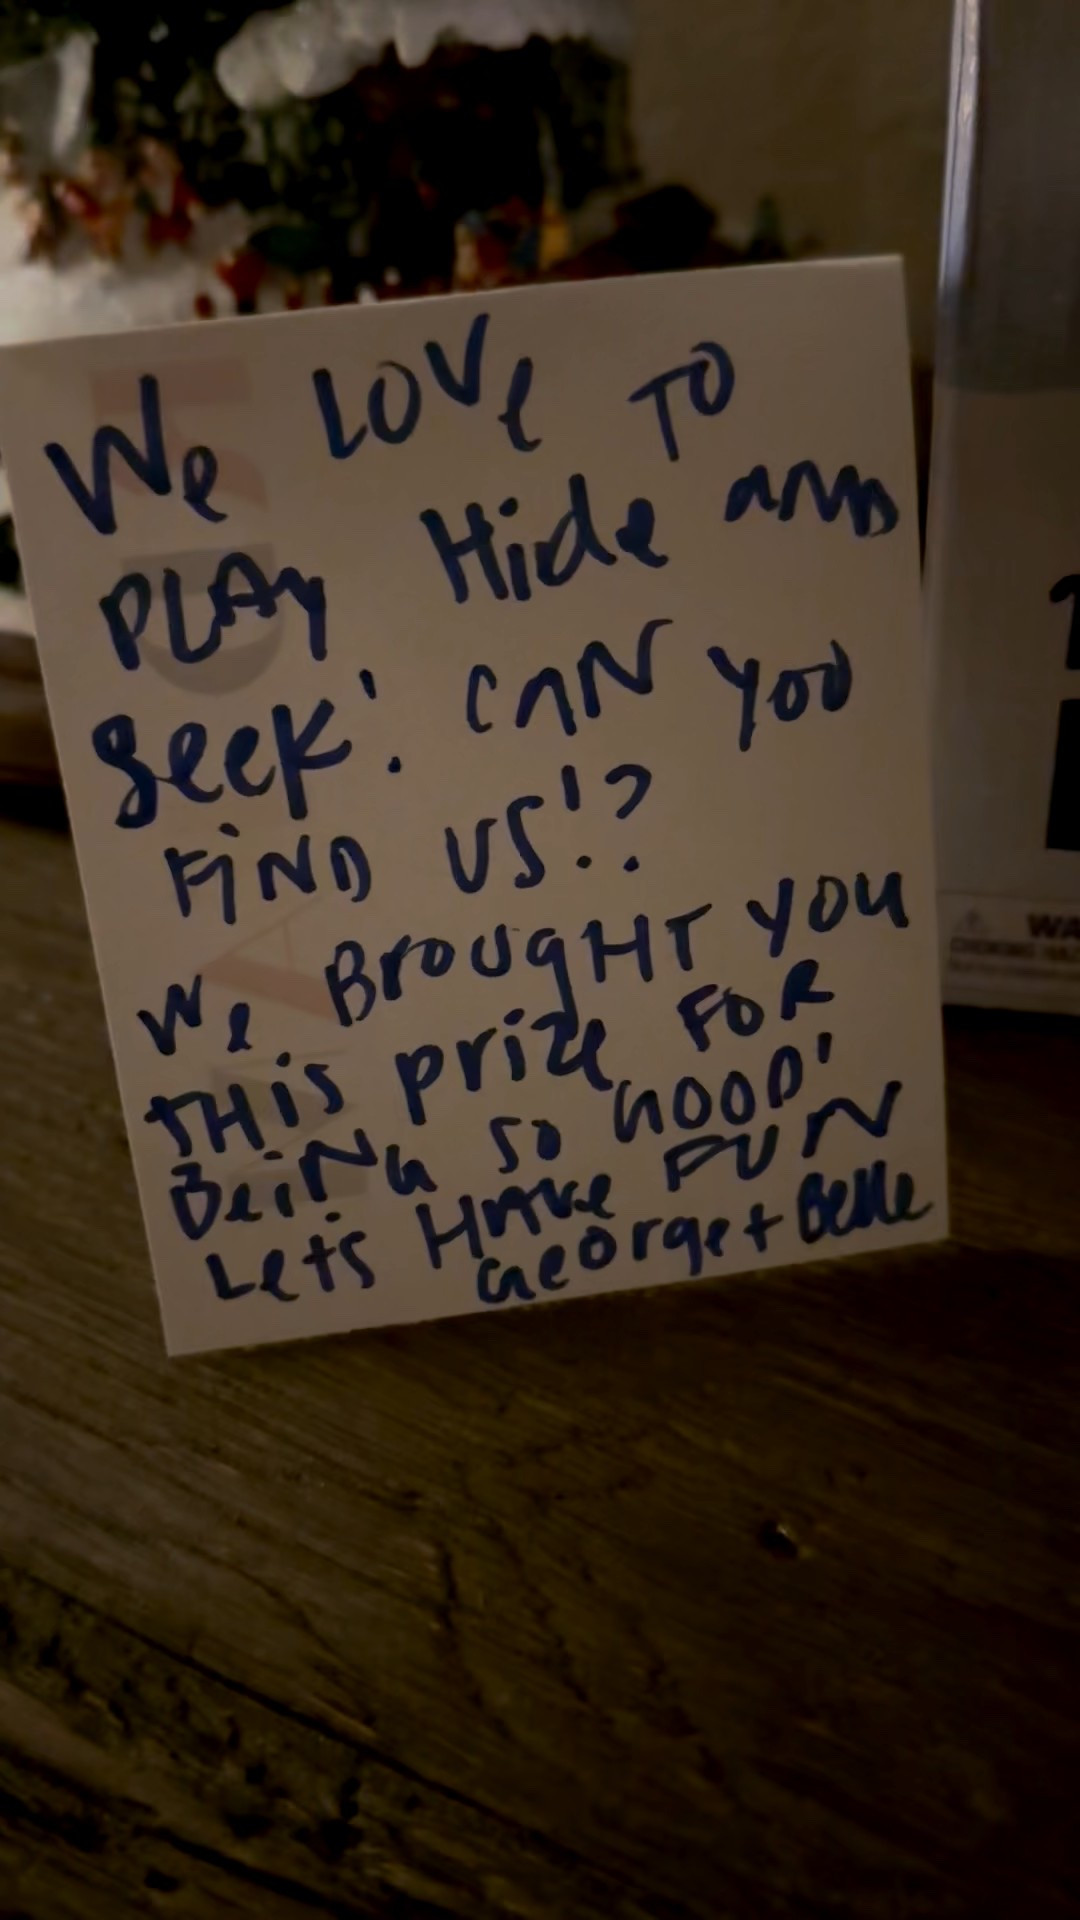 We LOVE TO
PLAY Hide and
Seek! CAN YOU
FIND US!?
We BrougHT YOU
THis prize FOR
BeiNG SO GOOD!
Lets HAve FUN
George + Belle
WA